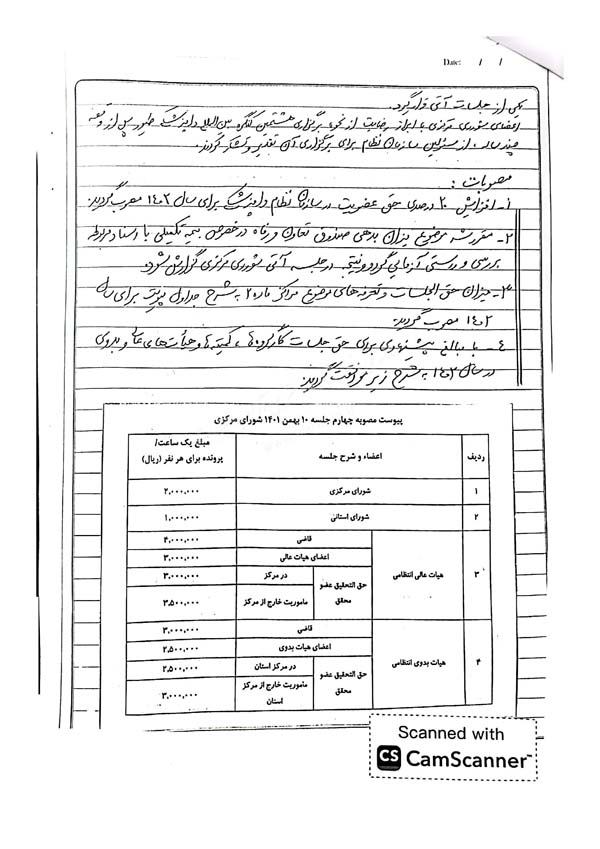 Date: / /
یکی از جلسات آتی قرار گیرد.
اعضای شورای مرکزی با ابراز رضایت از نحوه برگزاری هشتمین کنگره بین‌المللی دامپزشکی طیور پس از وقفه
چند ساله از مسئولین سازمان نظام برای برگزاری آن تقدیر و تشکر کردند.
مصوبات :
۱- افزایش ۲۰ درصدی حق عضویت در سازمان نظام دامپزشکی برای سال ۱۴۰۲ مصوب گردید.
۲- مقرر شد موضوع میزان بدهی صندوق تعاون و رفاه در خصوص بیمه تکمیلی با اسناد مربوطه
بررسی و راستی آزمایی گردد و نتیجه در جلسه آتی شورای مرکزی گزارش شود.
۳- میزان حق الجلسات و تعرفه‌های موضوع مراکز ماده ۲ به شرح جداول پیوست برای سال
۱۴۰۲ مصوب گردید.
۴- با مبالغ پیشنهادی برای حق جلسات کارگروه‌ها، کمیته‌ها و هیأت‌های عالی و بدوی
در سال ۱۴۰۲ به شرح زیر موافقت گردید:
پیوست مصوبه چهارم جلسه ۱۰ بهمن ۱۴۰۱ شورای مرکزی
ردیف اعضاء و شرح جلسه مبلغ یک ساعت/ پرونده برای هر نفر (ریال)
۱ شورای مرکزی ۲,۰۰۰,۰۰۰
۲ شورای استانی ۱,۰۰۰,۰۰۰
۳ هیات عالی انتظامی قاضی ۴,۰۰۰,۰۰۰
اعضای هیات عالی ۳,۰۰۰,۰۰۰
حق التحقیق عضو محقق در مرکز ۳,۰۰۰,۰۰۰
ماموریت خارج از مرکز ۳,۵۰۰,۰۰۰
۴ هیات بدوی انتظامی قاضی ۳,۰۰۰,۰۰۰
اعضای هیات بدوی ۲,۵۰۰,۰۰۰
حق التحقیق عضو محقق در مرکز استان ۲,۵۰۰,۰۰۰
ماموریت خارج از مرکز استان ۳,۰۰۰,۰۰۰
Scanned with
CS CamScanner™